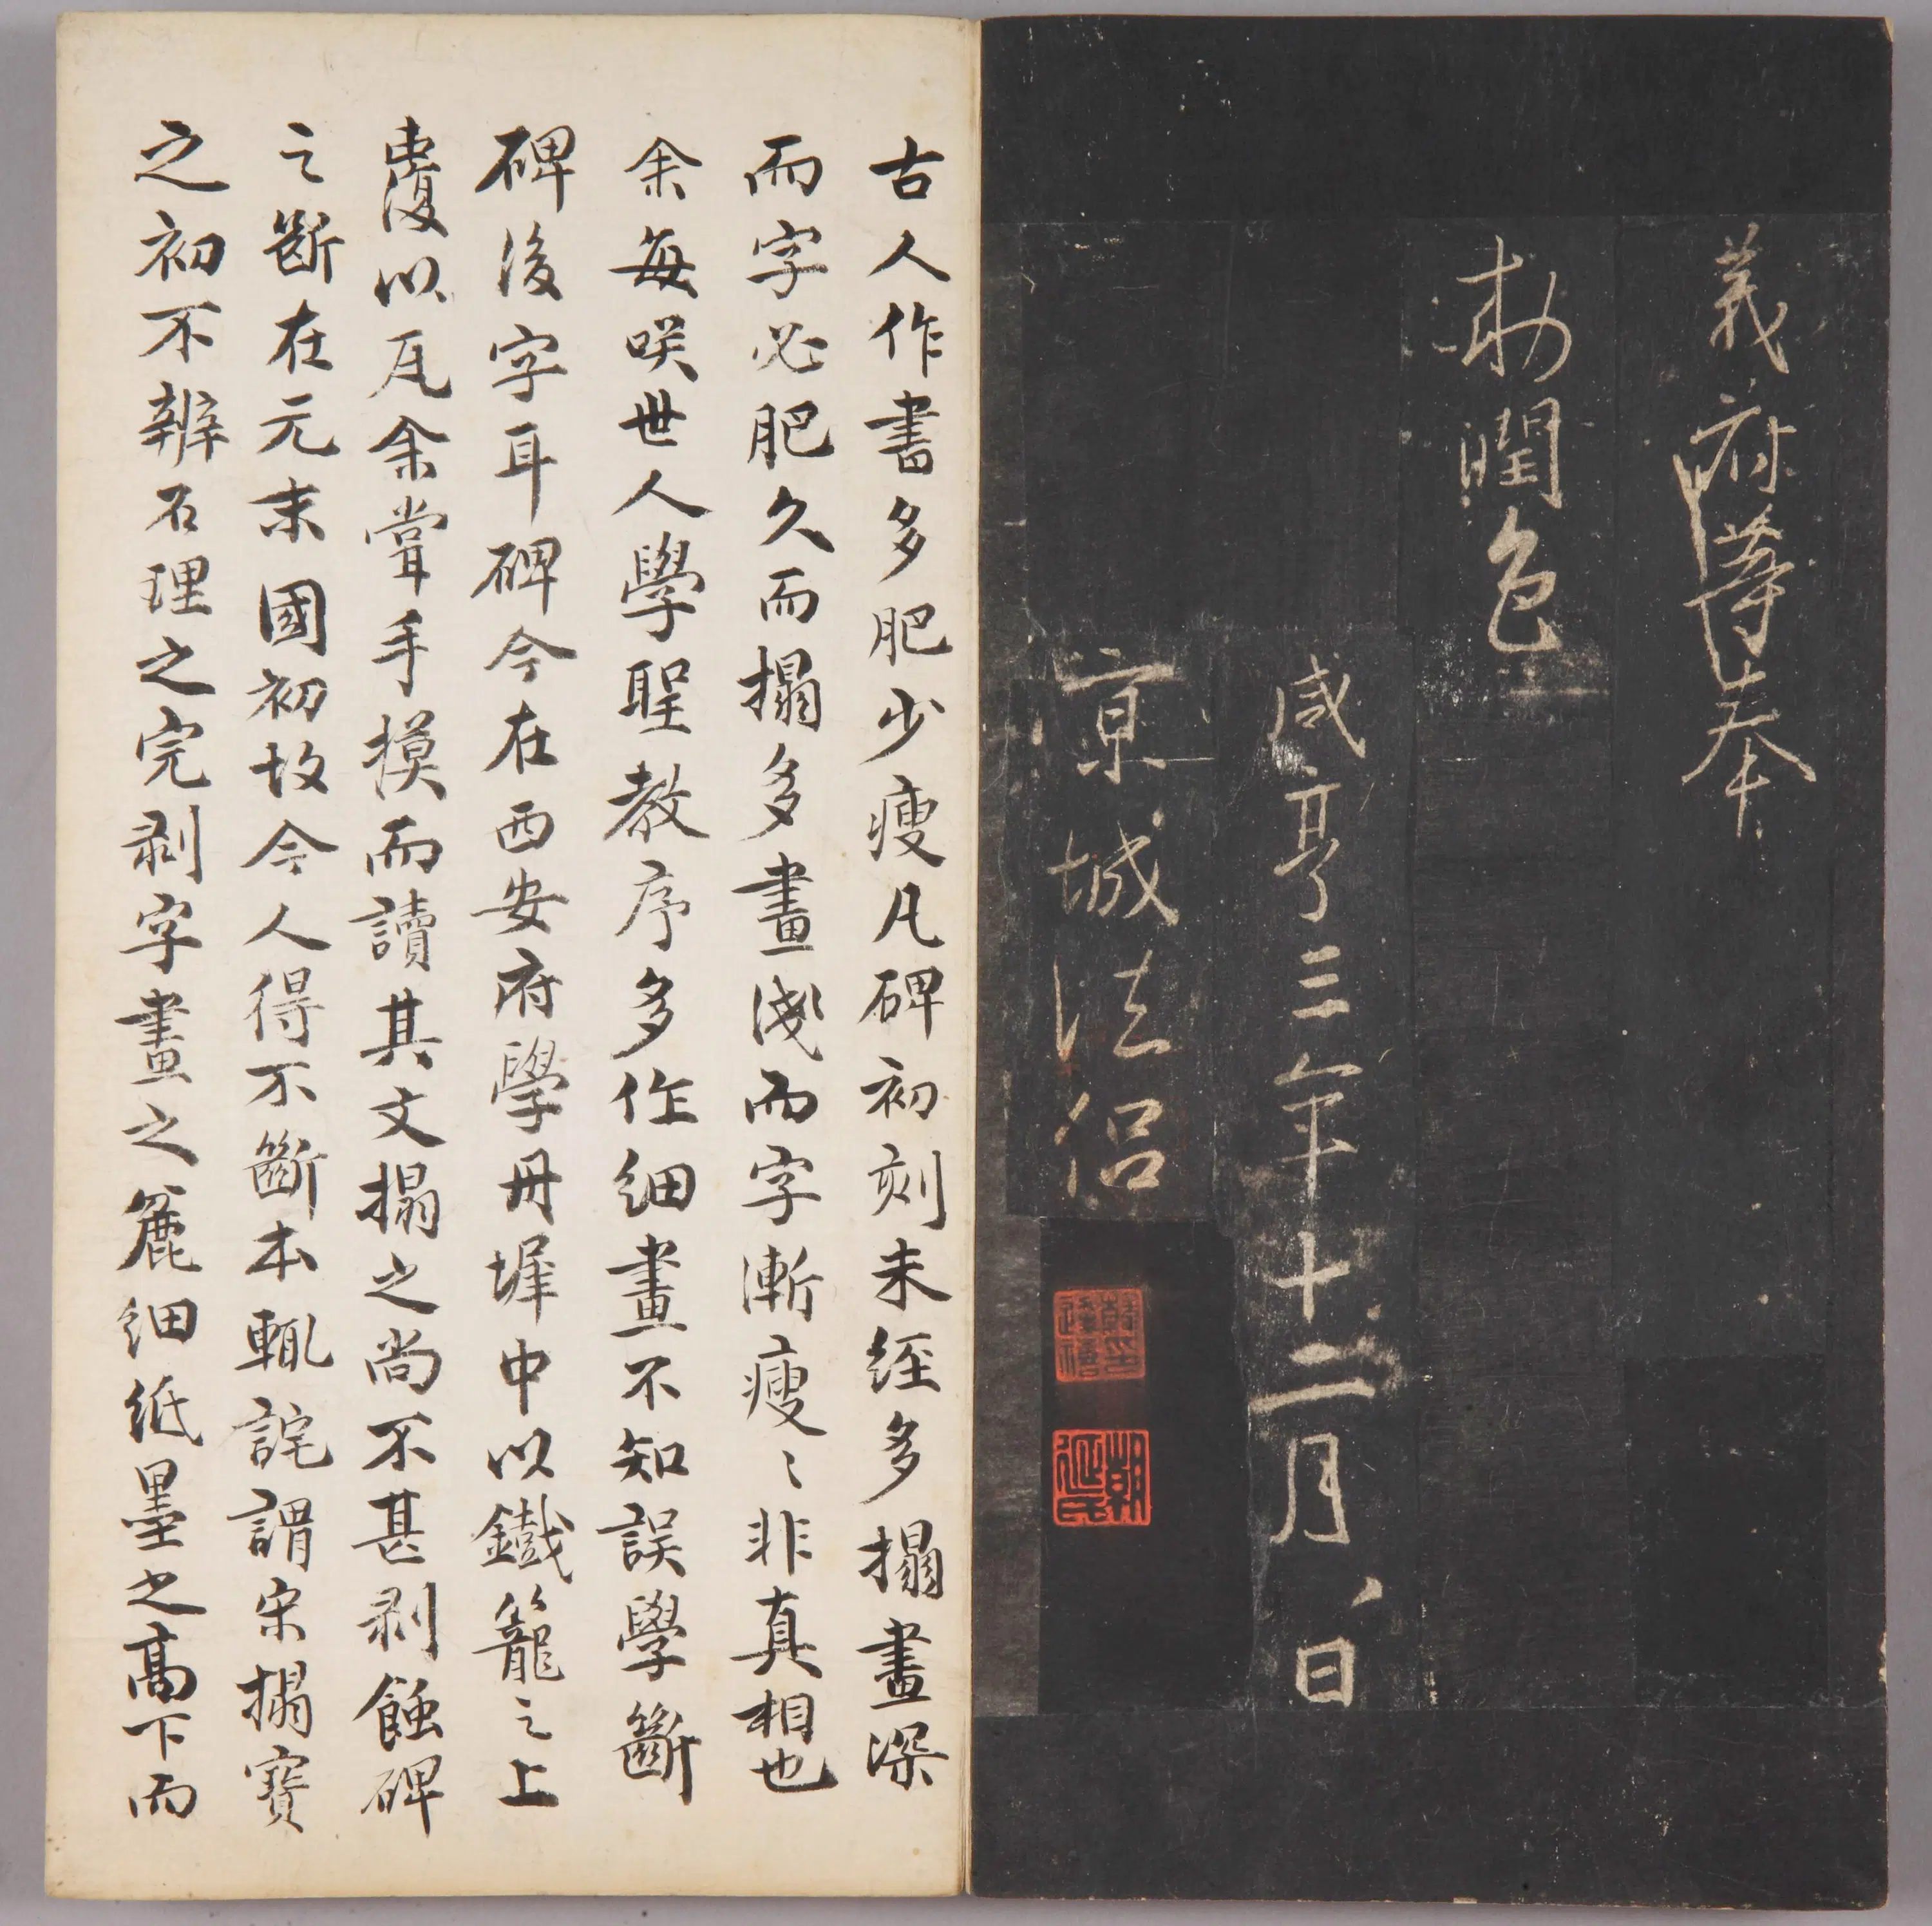 義府等奉
勅潤色
咸亨三年十二月八日
京城法侶
韓逢禧印
朝延氏
古人作書多肥少瘦凡碑初刻未經多搨畫深
而字必肥久而搨多畫淺而字漸瘦〻非真相也
余每咲世人學聖教序多作細畫不知誤學斷
碑後字耳碑今在西安府學丹墀中以鐵籠之上
覆以瓦余嘗手摸而讀其文搨之尚不甚剥蝕碑
之斷在元末國初故今人得不斷本輒詫謂宋搨寶
之初不辨石理之完剥字畫之麄細紙墨之高下而